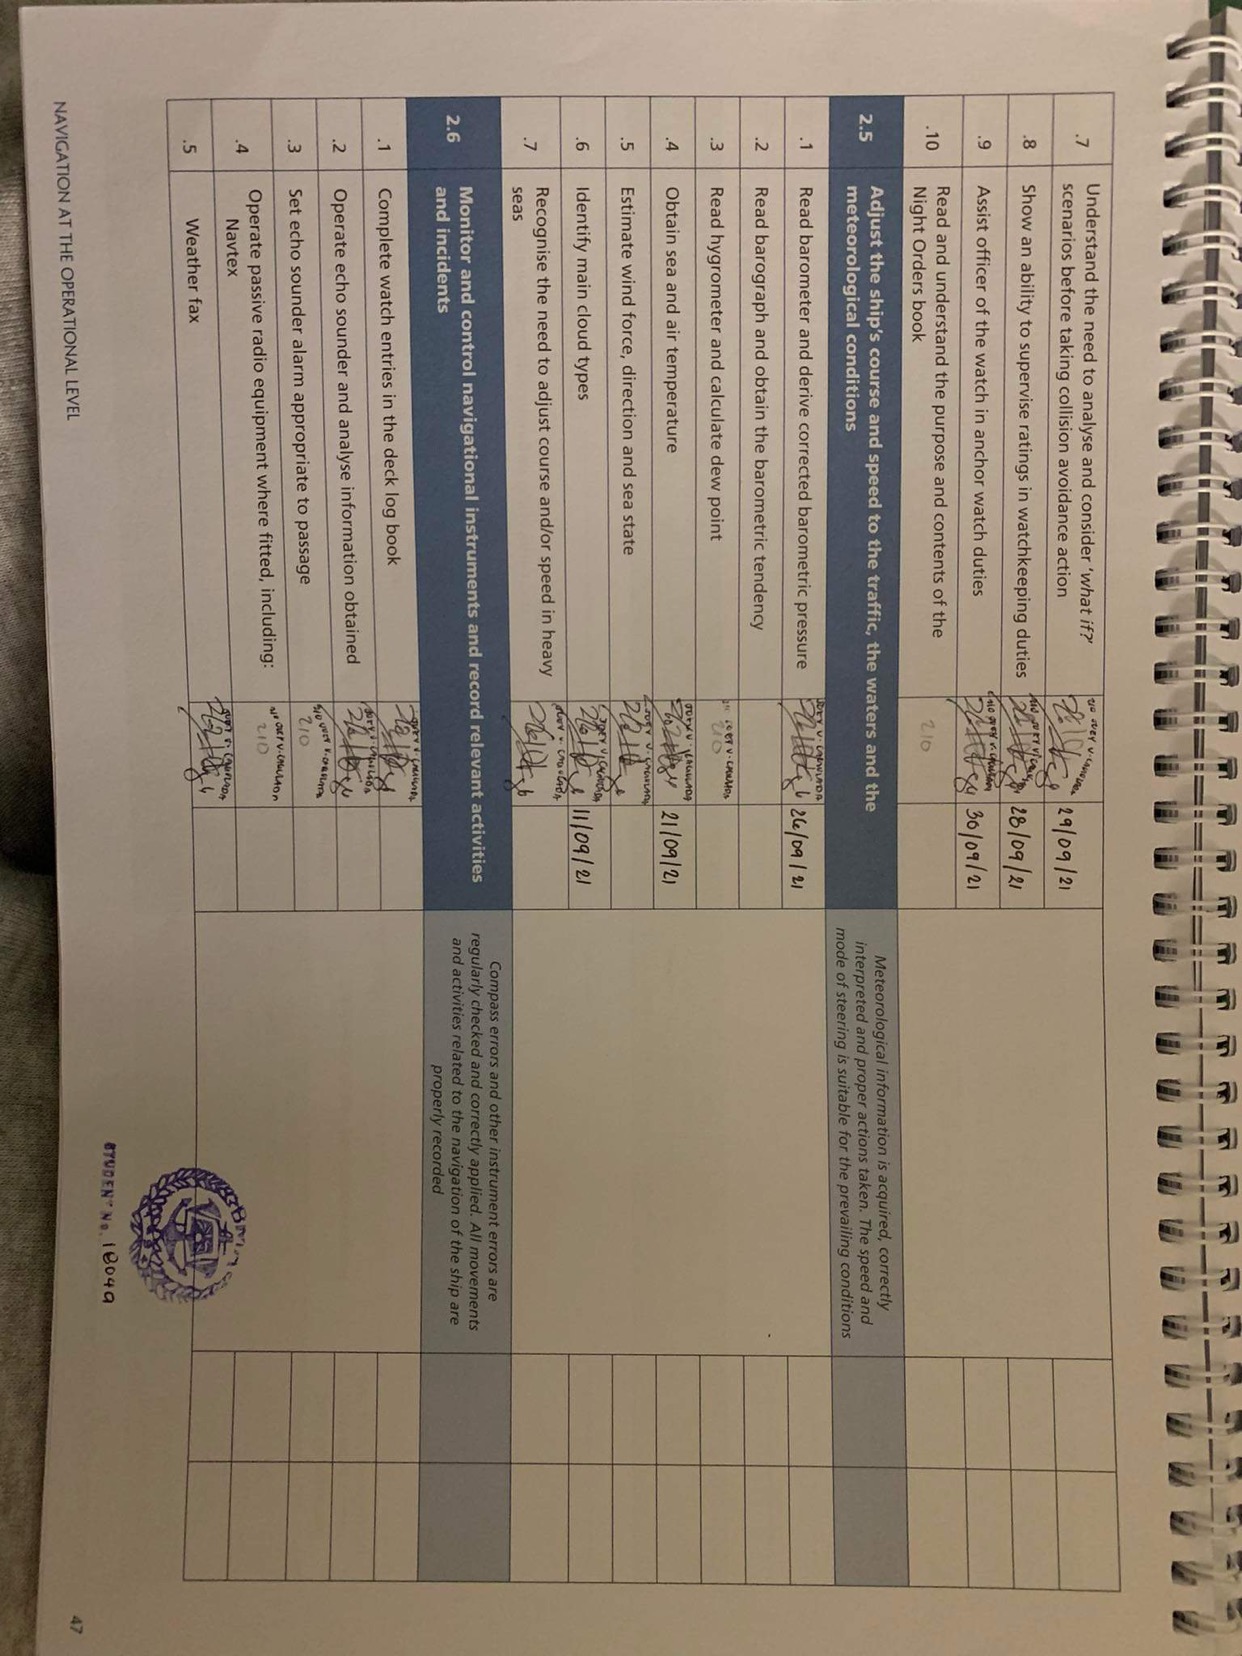 .7 Understand the need to analyse and consider 'what if?'
scenarios before taking collision avoidance action 29/09/21
.8 Show an ability to supervise ratings in watchkeeping duties 28/09/21
.9 Assist officer of the watch in anchor watch duties 30/09/21
.10 Read and understand the purpose and contents of the
Night Orders book 2/0
2.5 Adjust the ship's course and speed to the traffic, the waters and the
meteorological conditions
Meteorological information is acquired, correctly
interpreted and proper actions taken. The speed and
mode of steering is suitable for the prevailing conditions
.1 Read barometer and derive corrected barometric pressure 26/09/21
.2 Read barograph and obtain the barometric tendency
.3 Read hygrometer and calculate dew point 2/0
.4 Obtain sea and air temperature 21/09/21
.5 Estimate wind force, direction and sea state
.6 Identify main cloud types 11/09/21
.7 Recognise the need to adjust course and/or speed in heavy
seas
2.6 Monitor and control navigational instruments and record relevant activities
and incidents
Compass errors and other instrument errors are
regularly checked and correctly applied. All movements
and activities related to the navigation of the ship are
properly recorded
.1 Complete watch entries in the deck log book
.2 Operate echo sounder and analyse information obtained
.3 Set echo sounder alarm appropriate to passage 2/0
.4 Operate passive radio equipment where fitted, including:
Navtex 2/0
.5 Weather fax
STUDENT No. 18049
NAVIGATION AT THE OPERATIONAL LEVEL
47